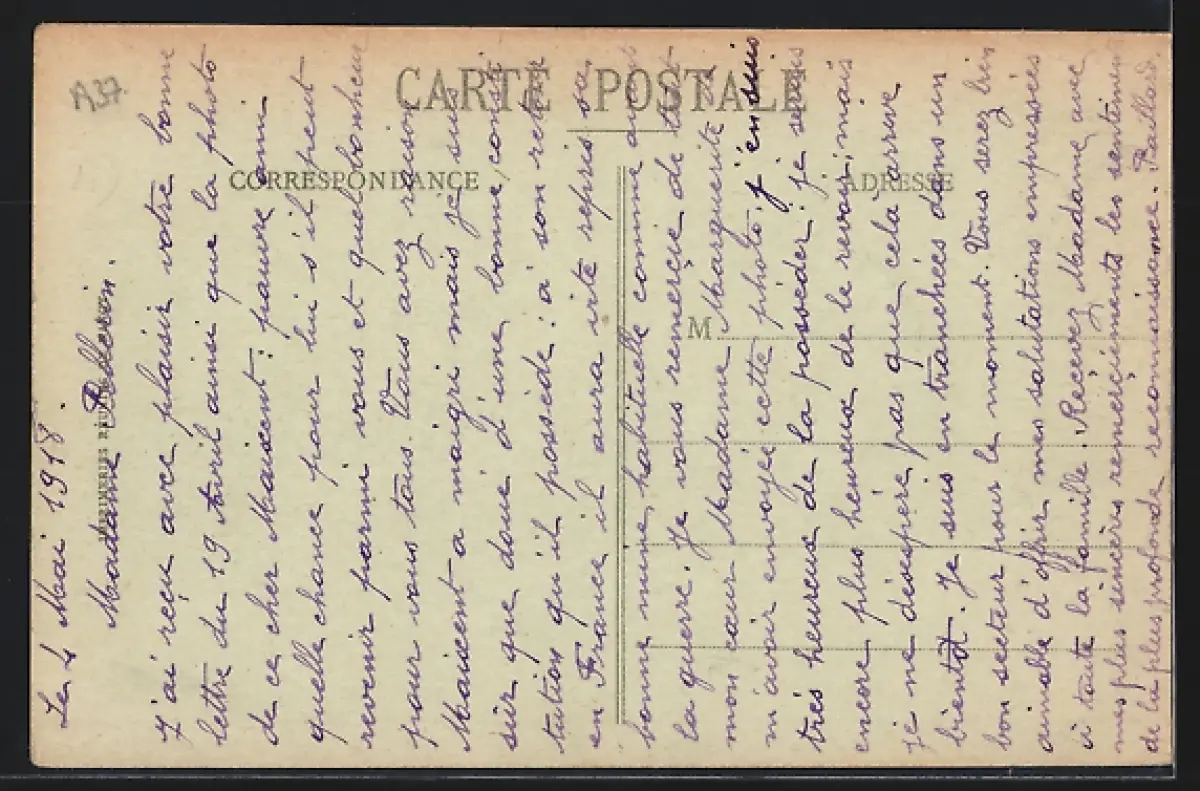 A37.
CARTE POSTALE
CORRESPONDANCE
ADRESSE
M
Le 4 Mai 1918.
Madame
J'ai reçu avec plaisir votre bonne
lettre du 19 Avril ainsi que la photo
de ce cher Maixent : pauvre ami
quelle chance pour lui s'il peut
revenir parmi vous et quel bonheur
pour vous tous. Vous avez raison
Maixent a maigri mais je suis
sûr que doué d'une bonne consti
tution qu'il possède : à son retour
en France il aura vite repris sa
bonne mine habituelle comme avant
la guerre. Je vous remercie de tout
mon cœur Madame Marguerite de
m'avoir envoyée cette photo. j'en suis
très heureux de la posséder : je serais
encore plus heureux de le revoir, mais
je ne désespère pas que cela arrive
bientôt. Je suis en tranchées dans un
bon secteur pour le moment. Vous serez bien
aimable d'offrir mes salutations empressées
à toute la famille. Recevez Madame avec
mes plus sincères remerciements les sentiments
de la plus profonde reconnaissance. Baillard.